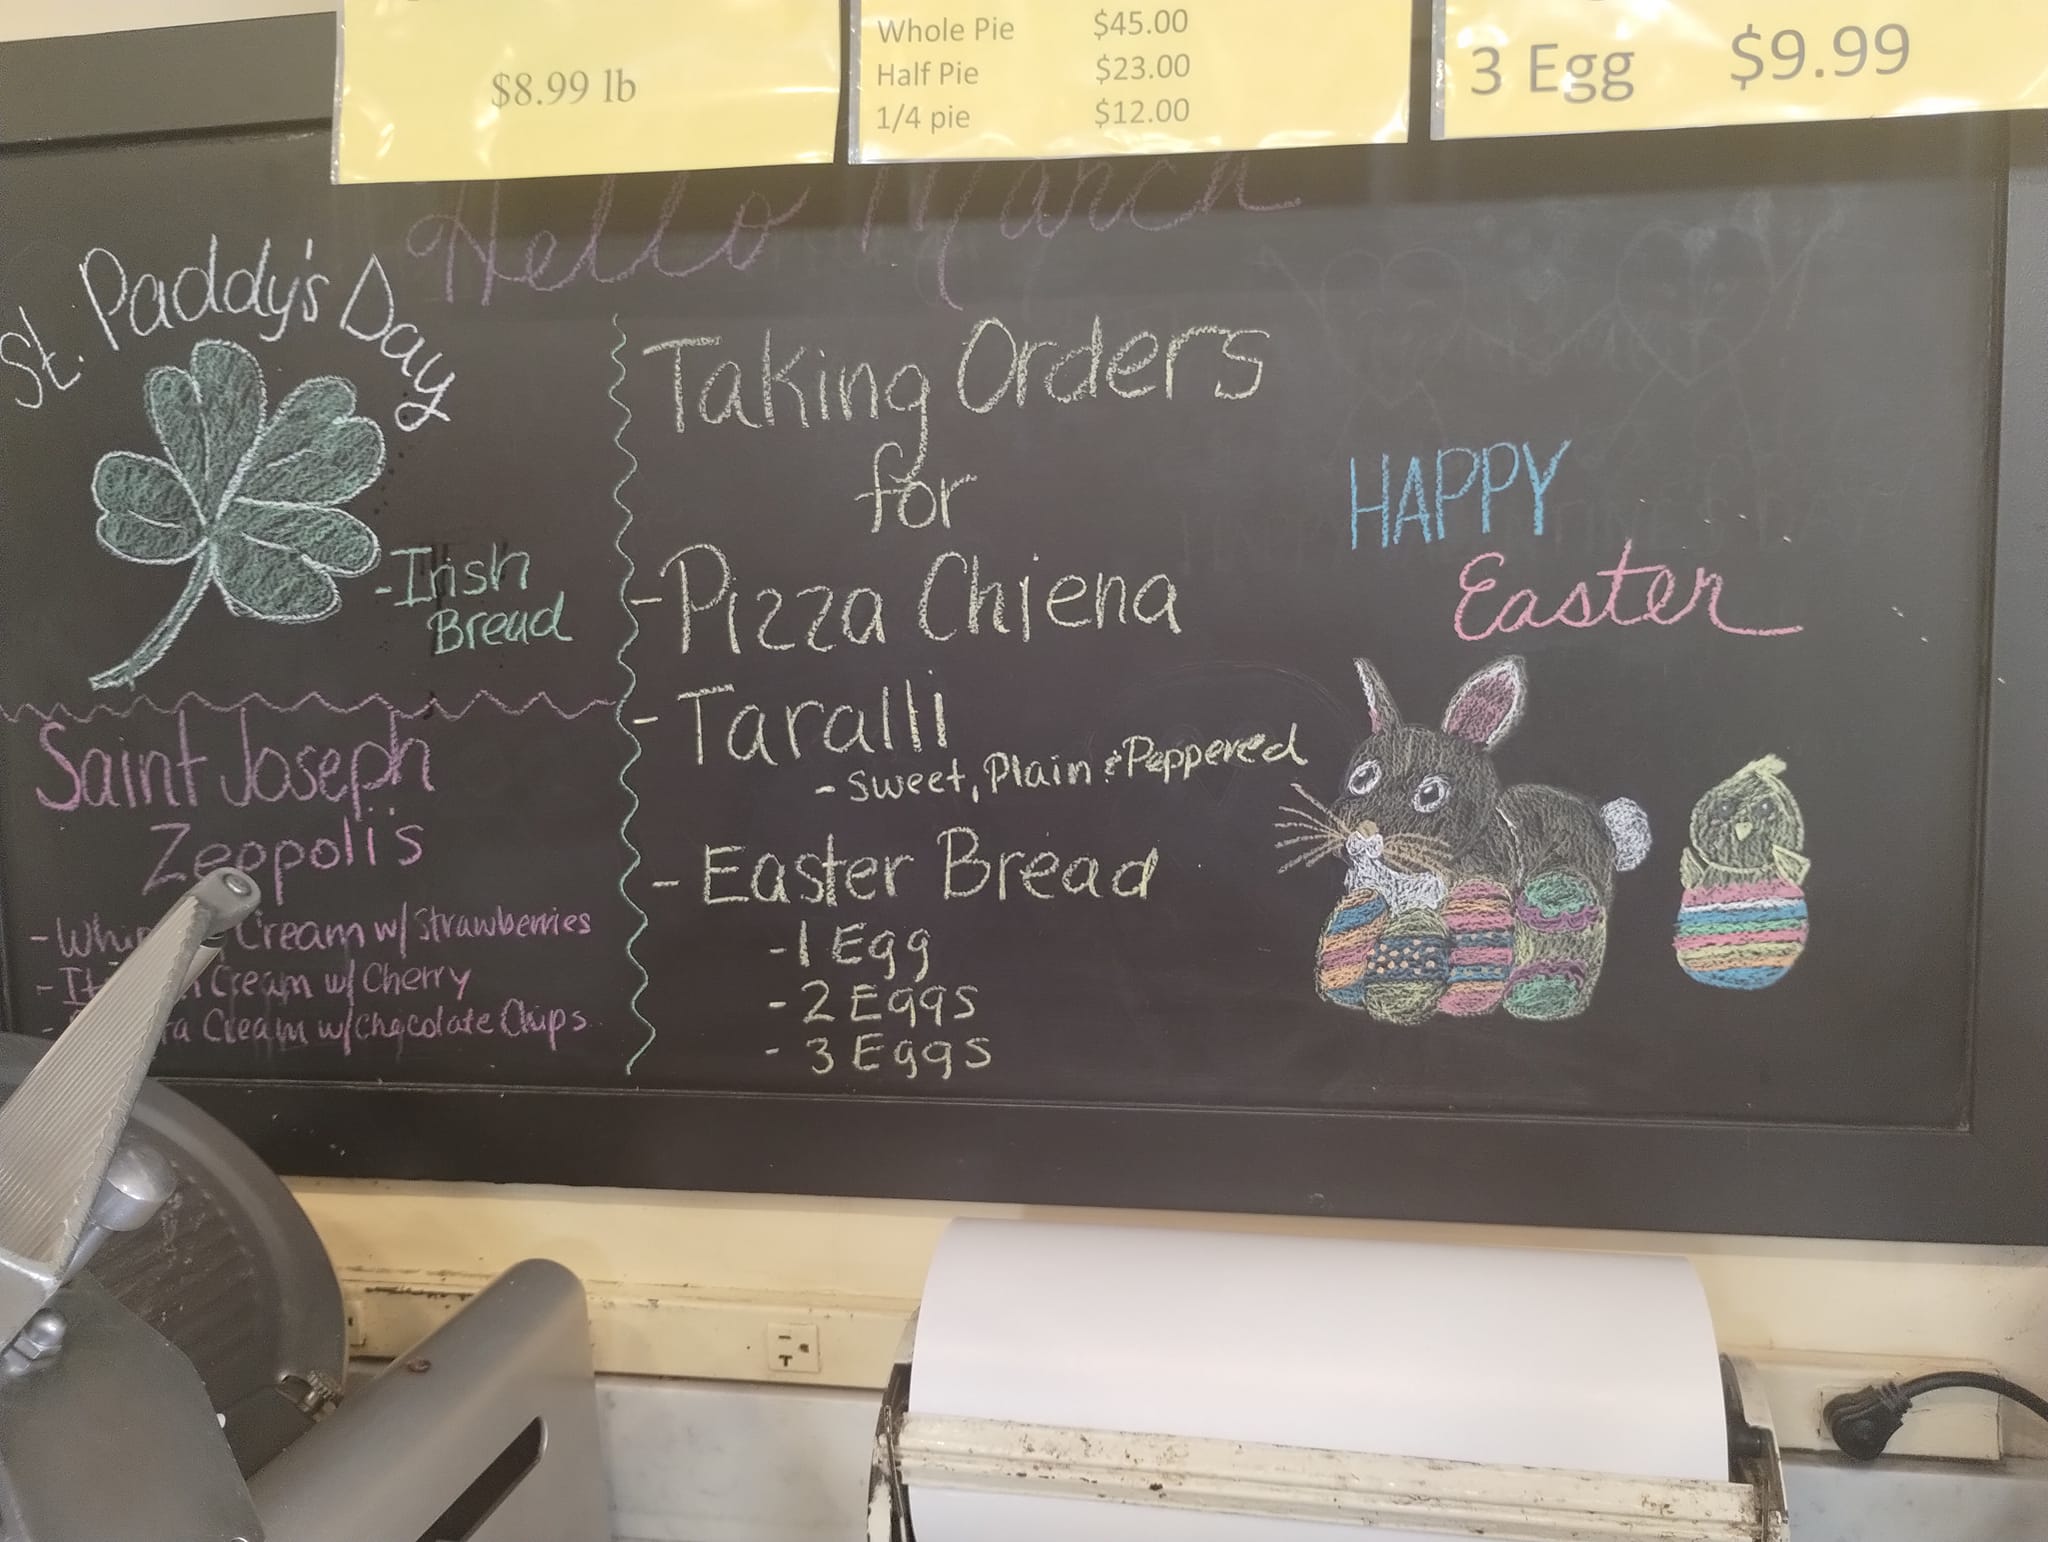 $8.99 lb
Whole Pie $45.00
Half Pie $23.00
1/4 pie $12.00
3 Egg $9.99
Hello March
St. Paddy's Day
-Irish
Bread
Saint Joseph
Zeppoli's
- Cream w/ Strawberries
- Cream w/ Cherry
- Cream w/ Chocolate Chips
Taking Orders
for
- Pizza Chiena
- Taralli
- Sweet, Plain & Peppered
- Easter Bread
- 1 Egg
- 2 Eggs
- 3 Eggs
HAPPY
Easter